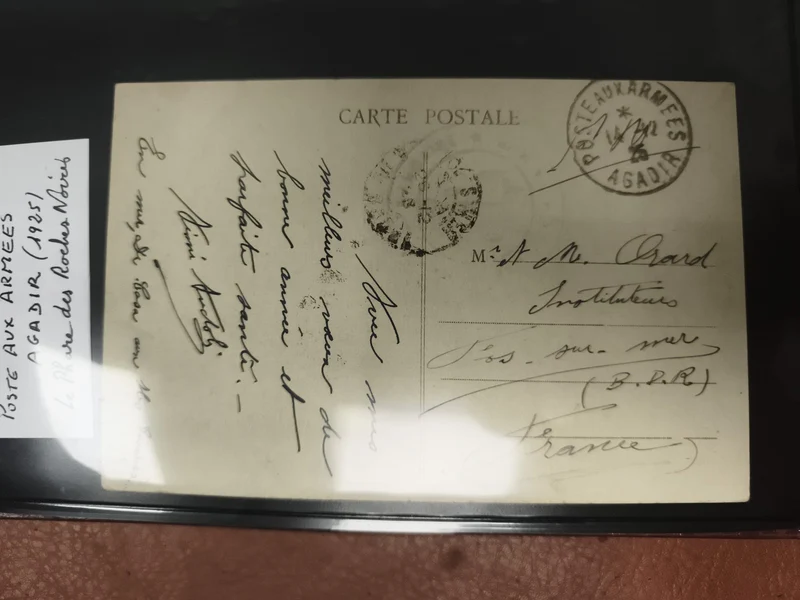 POSTE AUX ARMEES
AGADIR (1925)
Le Phare des Roches Noires
CARTE POSTALE
POSTE AUX ARMEES
25
AGADIR
Mr M. Orard
Instituteurs
Fos-sur-mer
(B.D.R)
France
Avec mes
meilleurs vœux de
bonne année et
parfaite santé. -